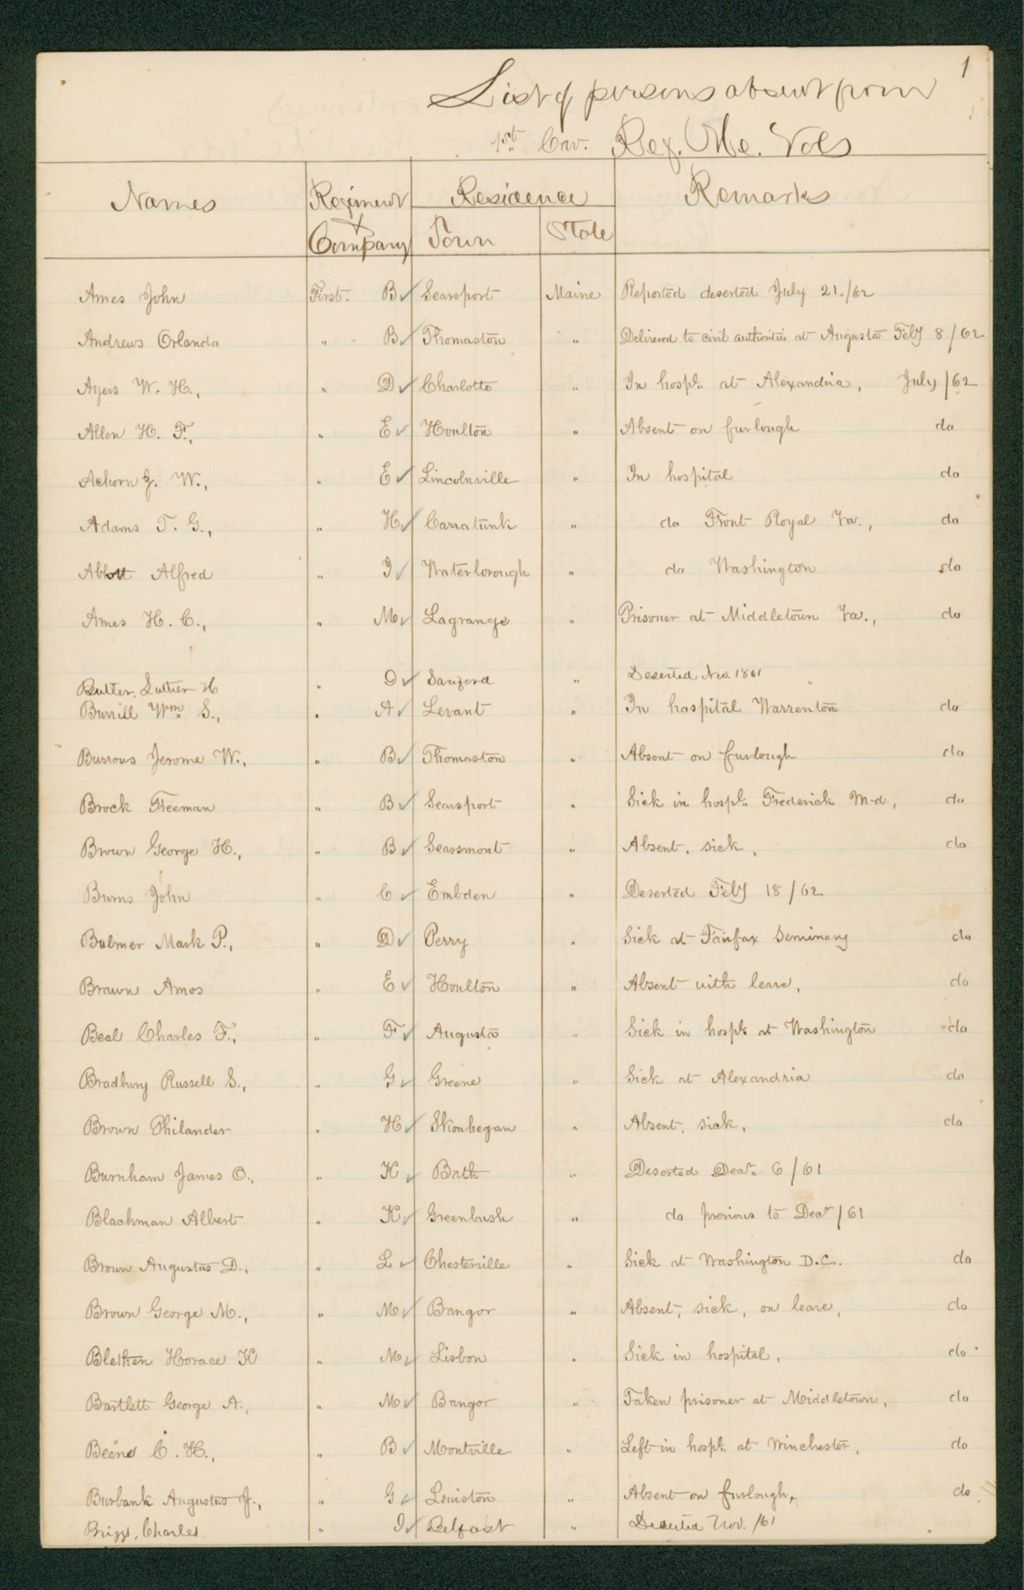 1
List of persons absent from
1st Cav. Reg. Me. Vols
Names Regiment & Company Residence Town State Remarks
Ames John First. B Searsport Maine Reported deserted July 21./62
Andrews Orlando " B Thomaston " Delivered to civil authorities at Augusta Feby 8/62
Ayers W. H., " D Charlotte " In hospl. at Alexandria, July/62
Allen H. F., " E Houlton " Absent on furlough do
Achorn J. W., " E Lincolnville " In hospital do
Adams T. G., " H Carratunk " do Front Royal Va., do
Abbott Alfred " I Waterborough " do Washington do
Ames H. C., " M Lagrange " Prisoner at Middletown Va., do
Butler, Luther H " D Sanford " Deserted Nov. 1861
Burrill Wm S., " A Levant " In hospital Warrenton do
Burrows Jerome W., " B Thomaston " Absent on furlough do
Brock Freeman " B Searsport " Sick in hospl. Frederick Md, do
Brown George H., " B Searsmont " Absent, sick, do
Burns John " C Embden " Deserted Feby 18/62
Bulmer Mark P., " D Perry " Sick at Fairfax Seminary do
Brawn Amos " E Houlton " Absent with leave, do
Beal Charles F., " F Augusta " Sick in hospl. at Washington do
Bradbury Russell S., " G Greene " Sick at Alexandria do
Brown Philander " H Skowhegan " Absent, sick, do
Burnham James O., " K Bath " Deserted Decr. 6/61
Blachman Albert " K Greenbush " do previous to Decr/61
Brown Augustus D., " L Chesterville " Sick at Washington D.C. do
Brown George M., " M Bangor " Absent, sick, on leave, do
Blethen Horace K " M Lisbon " Sick in hospital, do
Bartlett George A., " M Bangor " Taken prisoner at Middletown, do
Beene C. H., " B Montville " Left in hospl. at Winchester, do
Burbank Augustus J., " G Lewiston " Absent on furlough, do
Briggs, Charles " I Belfast " Deserted Nov. /61